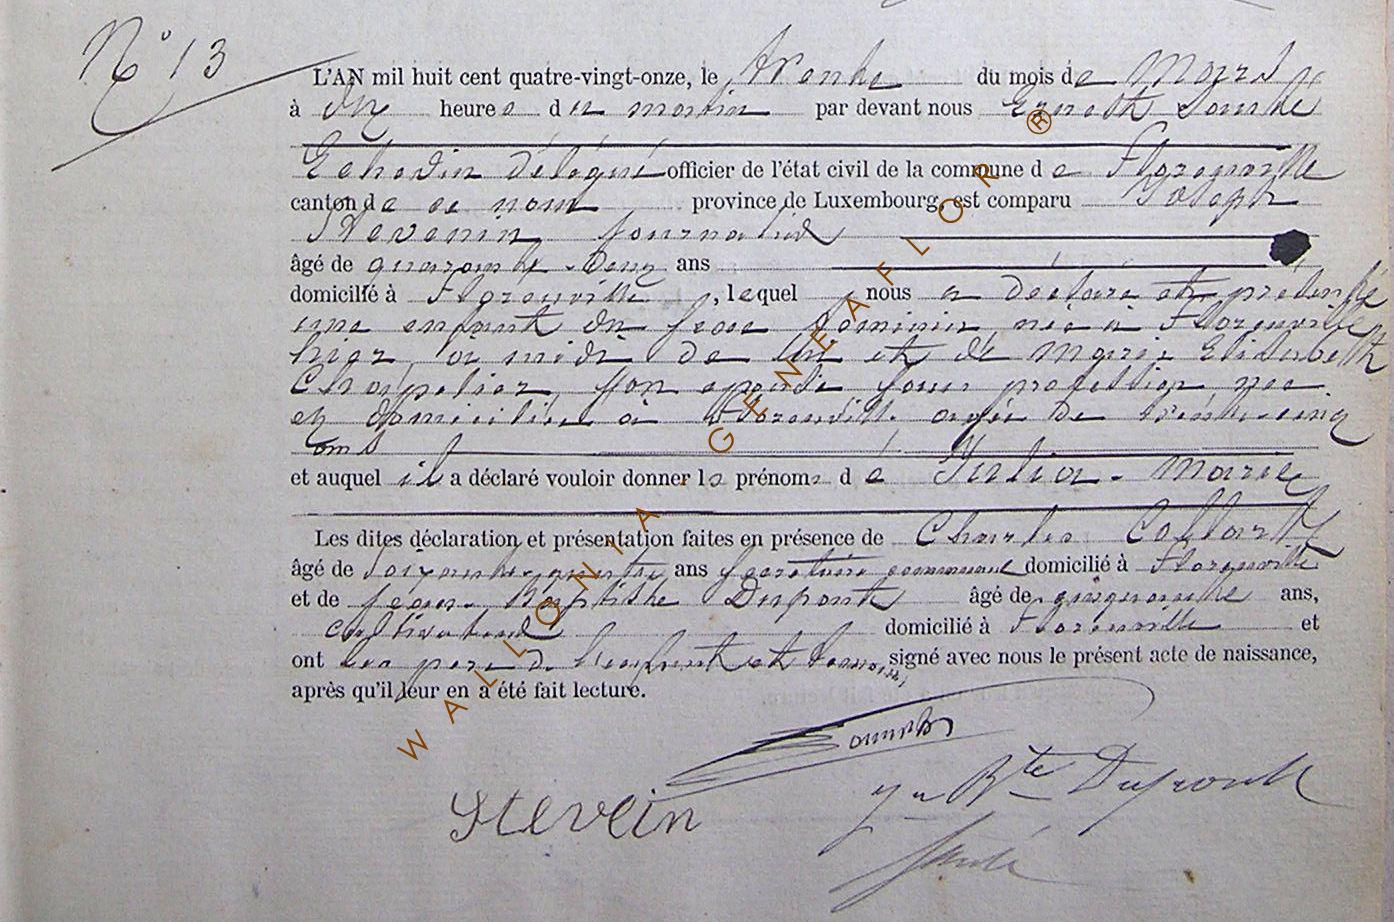 N° 13
L'AN mil huit cent quatre-vingt-onze, le trente du mois de Mars
à dix heures du matin par devant nous Ernest
Echevin délégué officier de l'état civil de la commune de Florenville
canton de ce nom province de Luxembourg, est comparu Joseph
Stevenin journalier
âgé de quarante-deux ans
domicilié à Florenville, lequel nous a déclaré et présenté
une enfant du sexe féminin, née à Florenville
hier, à midi de lui et de Marie Elisabeth
Chapelier, son épouse sans profession née
et domiciliée à Florenville âgée de trente-cinq
ans
et auquel il a déclaré vouloir donner le prénom de Julia-Marie
Les dites déclaration et présentation faites en présence de Charles Collart
âgé de soixante-quatre ans secrétaire communal domicilié à Florenville
et de Jean-Baptiste Dupont âgé de cinquante ans,
cultivateur domicilié à Florenville et
ont les père de l'enfant et témoins signé avec nous le présent acte de naissance,
après qu'il leur en a été fait lecture.
Stevein
Jn Bte Dupont
WALLONIA GENEAFLOR ®